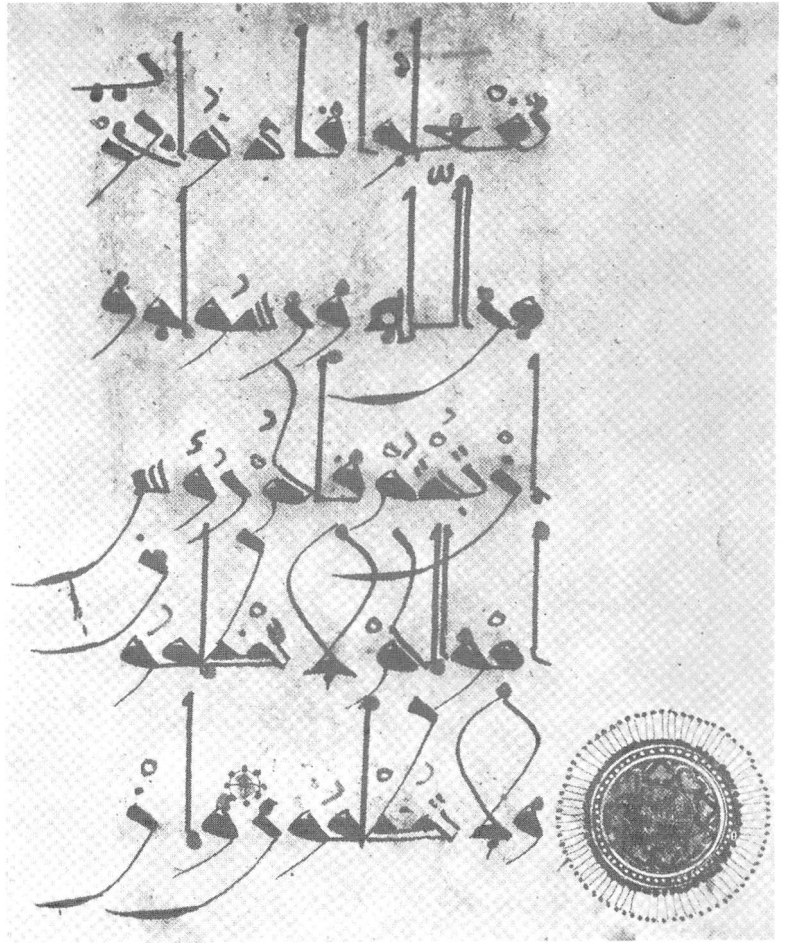 تفعلوا فاذنوا بحرب
من الله ورسوله و
ان تبتم فلكم رءوس
اموالكم لا تظلمون
ولا تظلمون وان